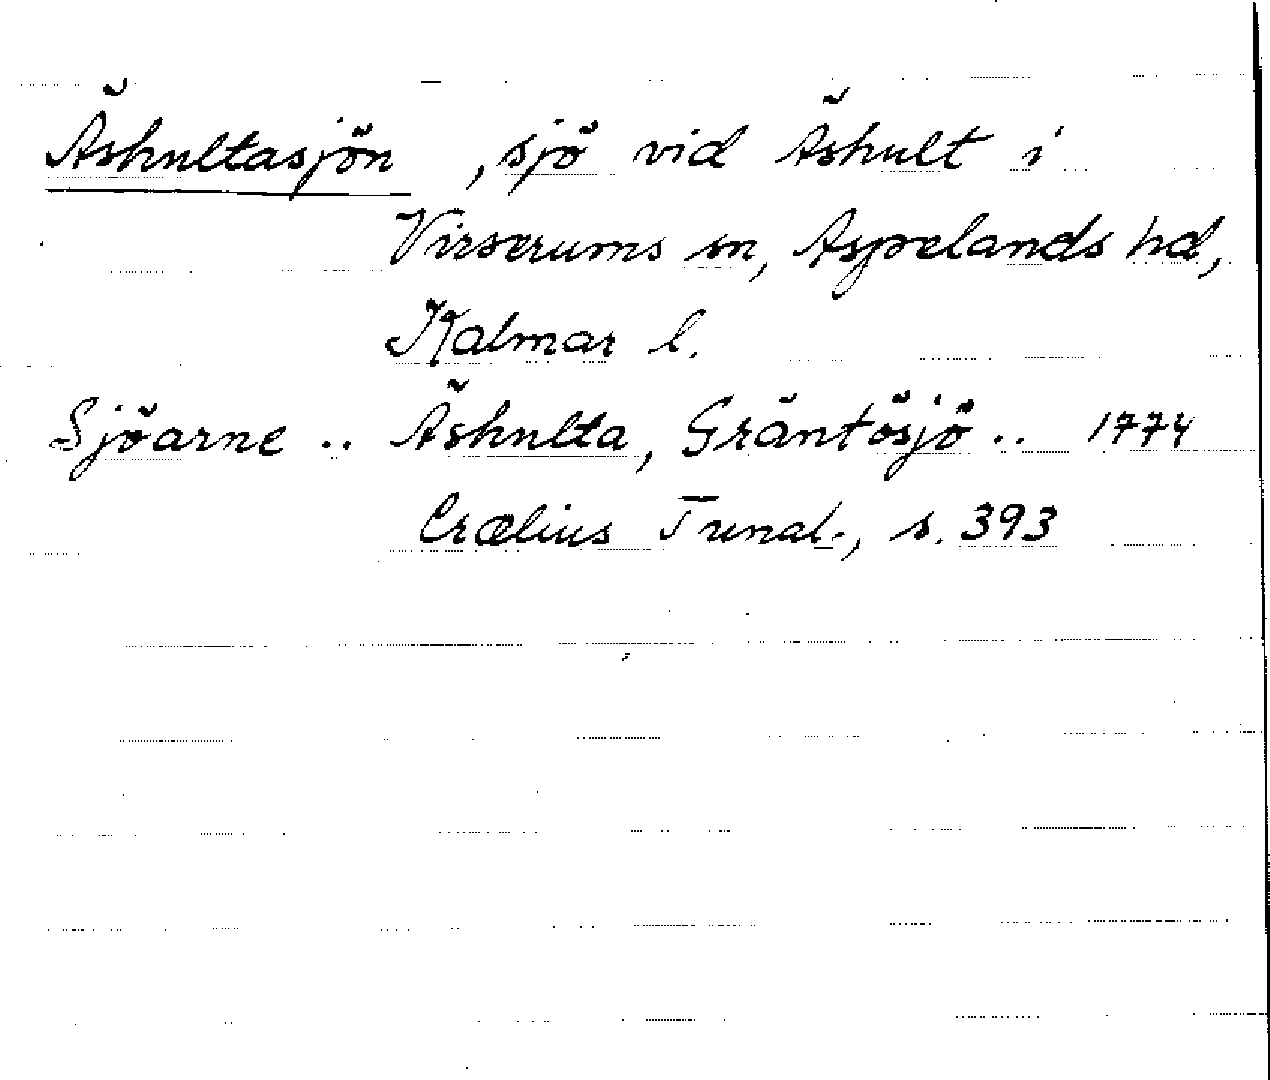 Äshultasjön, sjö vid Äshult i
Virserums sn, Aspelands hd,
Kalmar l.
Sjöarne .. Äshulta, Gräntösjö .. 1774
Crælius Tunal., s. 393